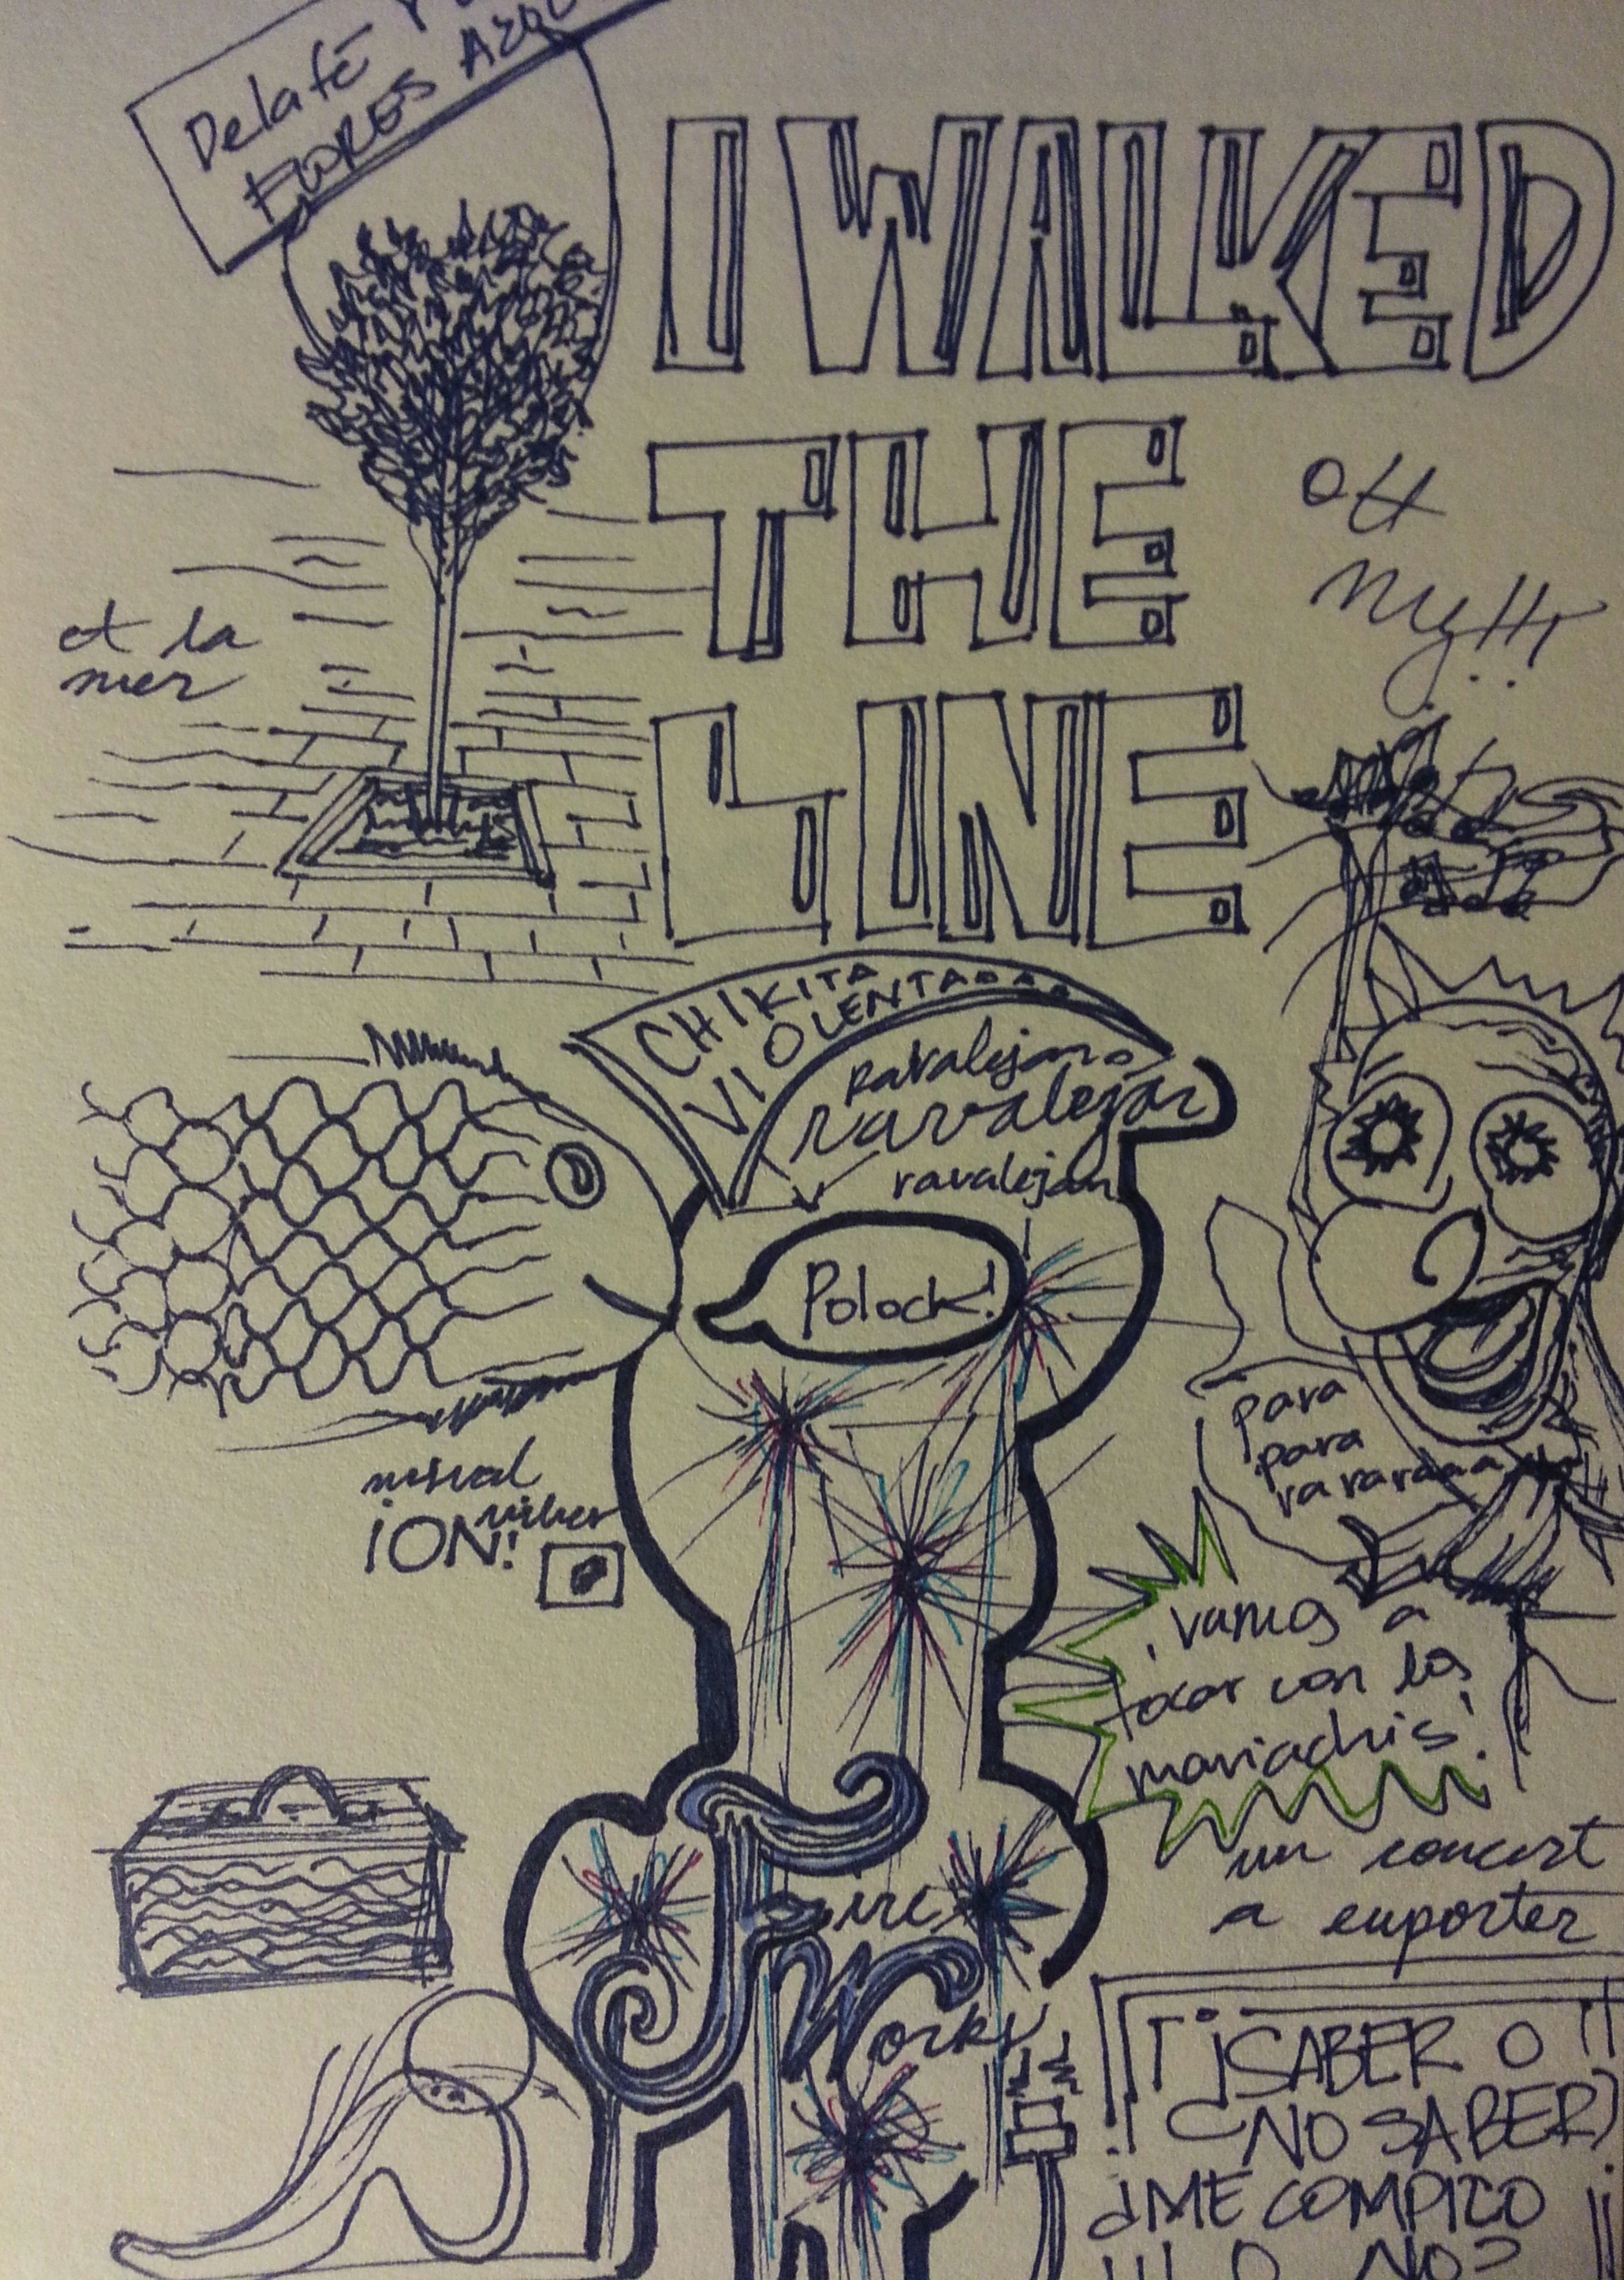 Delafé Y
FLORES Azu
I WALKED
THE
LINE
OH
My!!!
et la
mer
CHIKITA
VIOLENTADAAA
ravalejar
ravalejar
Polock!
para
para
rararaaa
¡ON!
¡vamos a
tocar con los
mariachis!
un concert
a emporter
Fire
Works
¡SABER O
NO SABER
¿ME COMPICO
O NO?